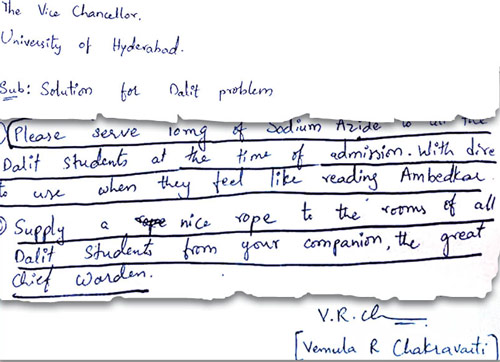 The Vice Chancellor.
University of Hyderabad.
Sub: Solution for Dalit problem
Please serve 10mg of Sodium Azide to all the
Dalit students at the time of admission. With dire
to use when they feel like reading Ambedkar.
Supply a rope nice rope to the rooms of all
Dalit students from your companion, the great
Chief Warden.
V.R.Ch
[Vemula R Chakravarti]